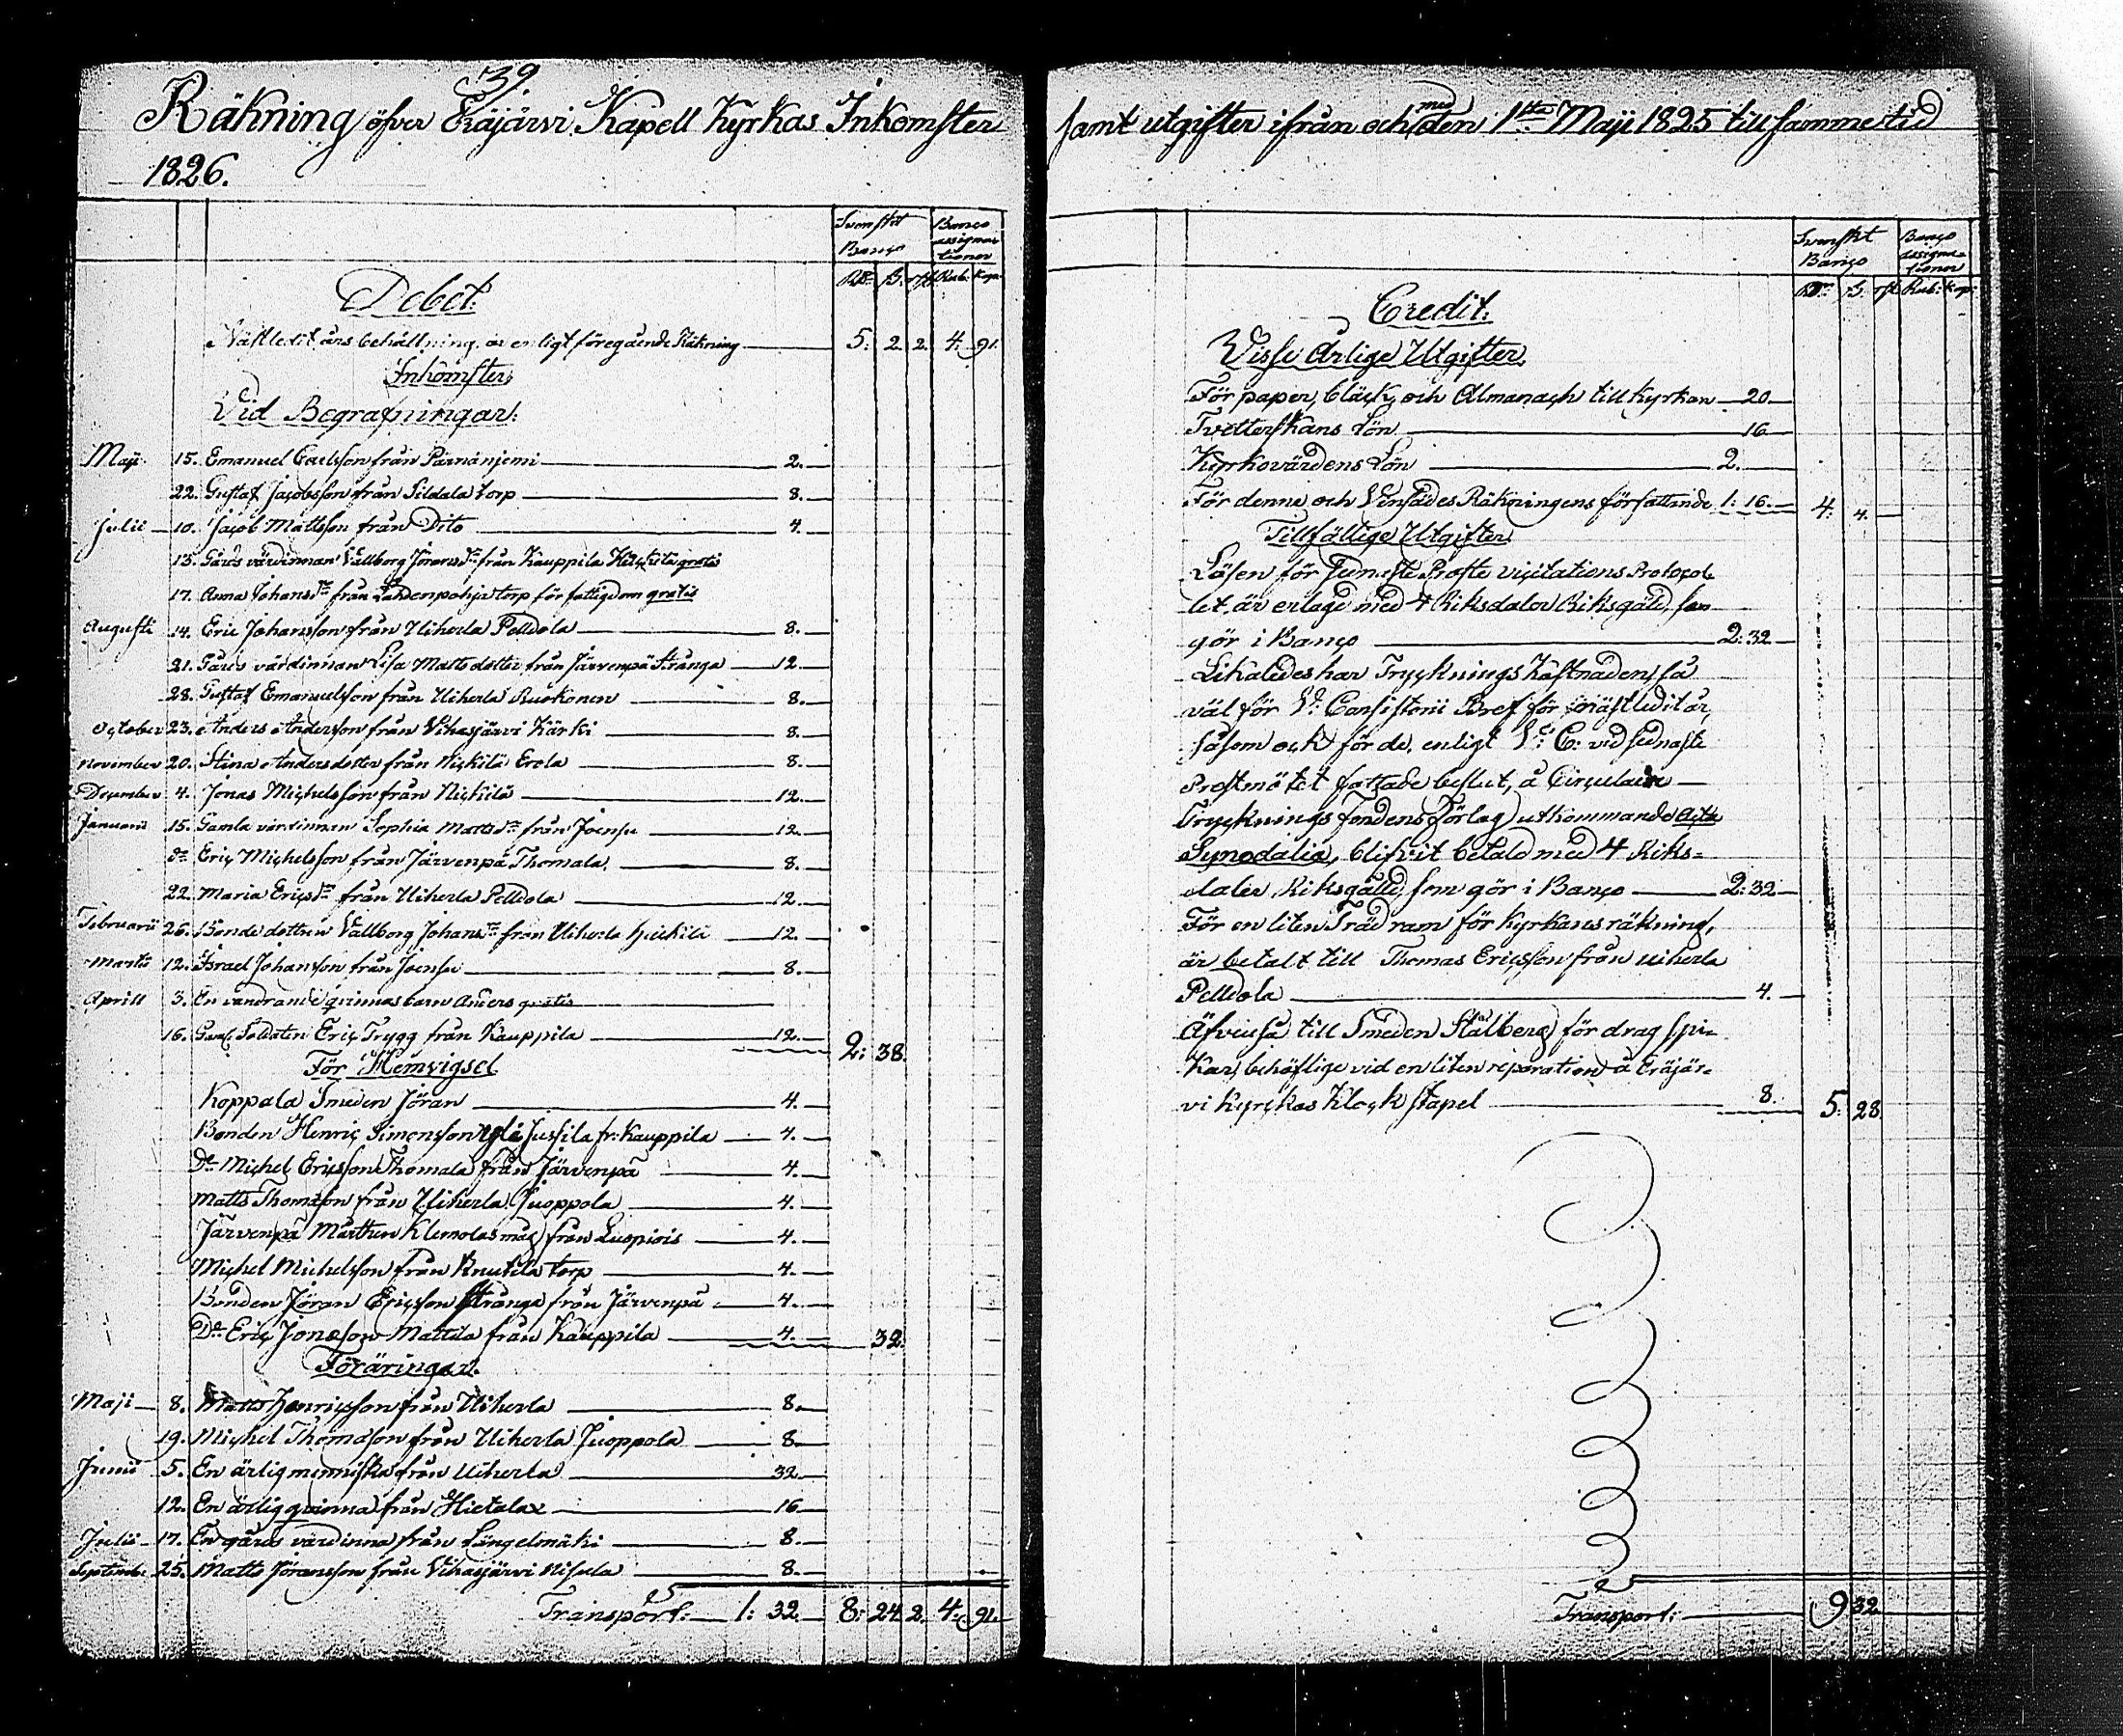 39.
Räkning öfver Eräjärvi Kapell Kyrkas Inkomster
1826.
Svenskt Banco
Banco assignationer
RD: ß. rst. Rub: Kop:
Debet:
Näst ledit års behållning är enligt föregående Räkning 5: 2. 2. 4: 91.
Inkomster
Vid Begrafningar:
Maji 15. Emanuel Carlsson från Pärnänjemi 2.
22. Gustaf Jacobsson från Sildala torp 8.
Julii 10. Jacob Mattsson från Dito 4.
13. Gårds värdinnan Vallborg Jörans dr från Kauppila gratis
17. Anna Johans dr från Lahdenpohja torp för fattigdom gratis
Augusti 14. Eric Johansson från Uiherla Pelldola 8.
21. Gårds värdinnan Lisa Matts dotter från Järvenpä Stränga 12
28. Gustaf Emanuelsson från Uiherla Ruokonen 8.
October 23. Anders Andersson från Vihasjärvi Kärki 8.
November 20. Stina Anders dotter från Nickilä Erola 8.
December 4. Jonas Michelsson från Nickilä 12.
Januarii 15. Gamla värdinnan Sophia Matts dr från Joensu 12.
do Eric Michelsson från Järvenpä Thomala 8.
22. Maria Erics dr från Uiherla Pelldola 12.
Februarii 26. Bonde dottren Vallborg Johans dr från Uiherla Heickilä 12.
Martii 12. Israel Johansson från Joensu 8.
Aprill 3. En vandrande qvinnas barn Anders gratis
16. Gaml. Soldaten Eric Trygg från Kauppila 12. 2: 38.
För Hemvigsel
Koppala Smeden Jöran 4.
Bonden Henric Simonsson Jussila fr: Kauppila 4.
Do Michel Ericsson Thomala från Järvenpä 4.
Matts Thomasson från Uiherla Juoppola 4.
Järvenpä Mårthen Klemolas måg från Luopiois 4.
Michel Michelsson från Knutila torp 4.
Bonden Jöran Ericsson Stränga från Järvenpä 4.
Do Eric Jonasson Mattila från Kauppila 4. 32.
Föräringar.
Maji 8. Matts Henricsson från Uiherla 8.
19. Michel Thomasson från Uiherla Juoppola 8.
Junii 5. En ärlig menniska från Uiherla 32.
12. En ärlig qvinna från Hietalax 16.
Julii 17. En gårds värdinna från Längelmäki 8.
September 25. Matts Jöransson från Vihasjärvi Nisula 8.
Transport: 1: 32. 8: 24. 2. 4: 91.
samt utgifter ifrån och med den 1sta Maji 1825 till samme tid
Svenskt Banco
Banco assignationer
RD: ß. rst. Rub: Kop:
Credit.
Visse Årlige Utgifter.
För paper, bläck, och Almanach till Kyrkan 20.
Tvetterskans Lön 16
Kyrkovärdens Lön 2.
För denne och Vinsädes Räkningens författande 1: 16. 4: 4.
Tillfällige Utgifter
Lösen för senaste Proste visitations Protocol-
let är erlagd med 4 Riksdaler Riksgäld, som
gör i Banco 2: 32
Likaledes har Trycknings Kostnaden, så
väl för V: Consistorii Bref för näst ledit år,
såsom och för de, enligt V: C: vid sednaste
Prostmötet fattade beslut, å Circulair
Trycknings Fondens Förlag utkommande Acta
Synodalia, blifvit betald med 4 Riks-
daler Riksgälld, som gör i Banco 2: 32
För en liten Träd ram för Kyrkans räkning,
är betalt till Thomas Ericsson från Uiherla
Pelldola 4.
Äfvenså till Smeden Stålberg för drag spi-
kar, behöflige vid en liten reparation å Eräjär-
vi Kyrckas Klock stapel 8. 5: 28.
Transport: 9 32